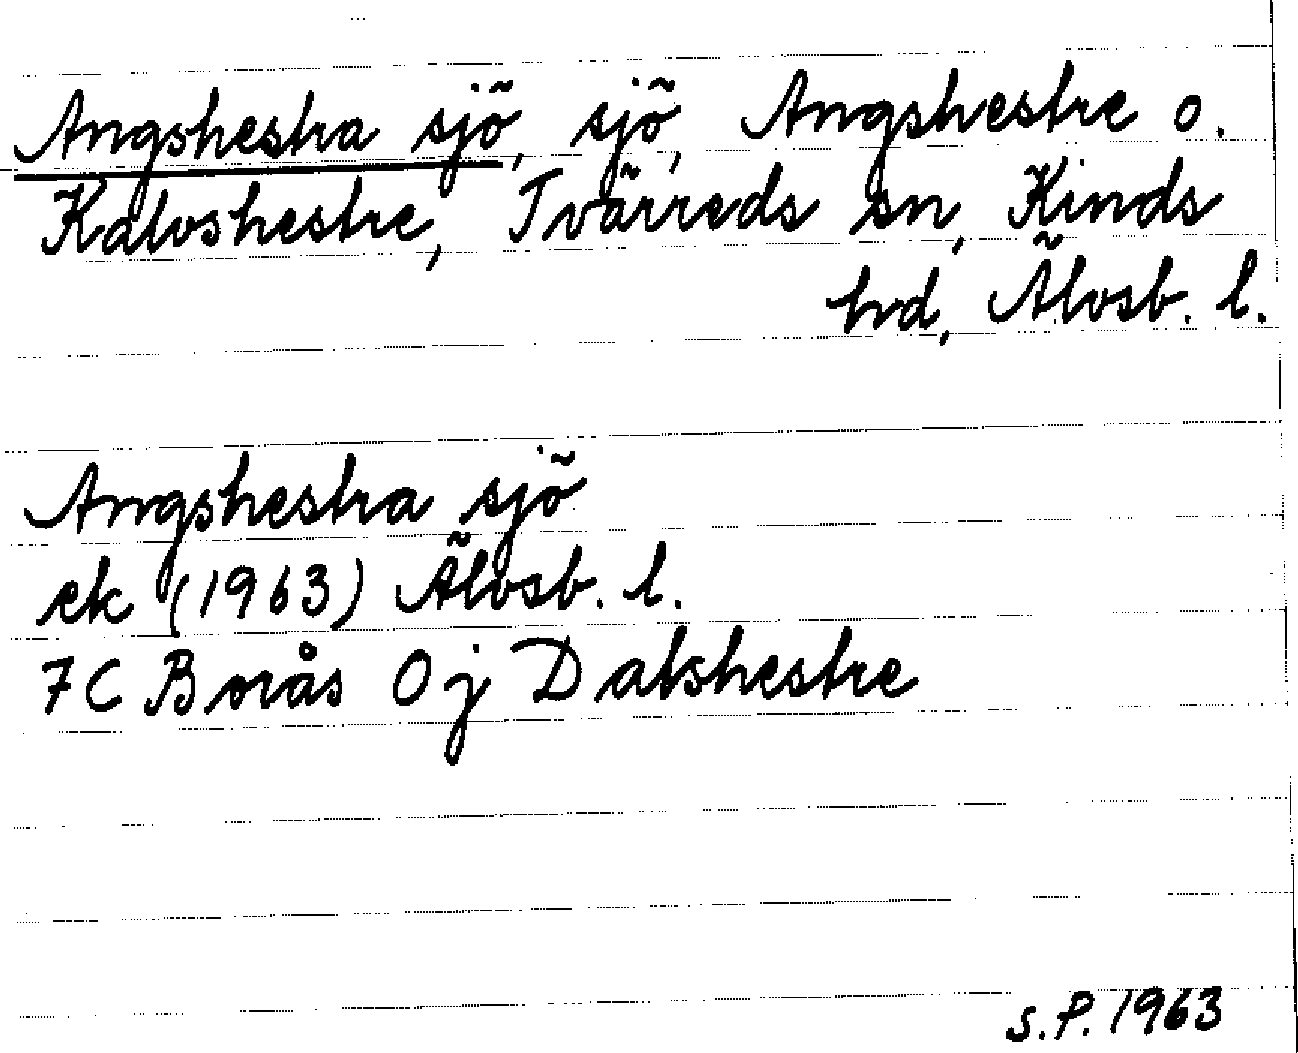 Angshestra sjö, sjö, Angshestre o.
Kalvshestre, Tvärreds sn, Kinds
hd, Älvsb. l.
Angshestra sjö
ek (1963) Älvsb. l.
7C Borås Oj Dalshestre
S.P. 1963